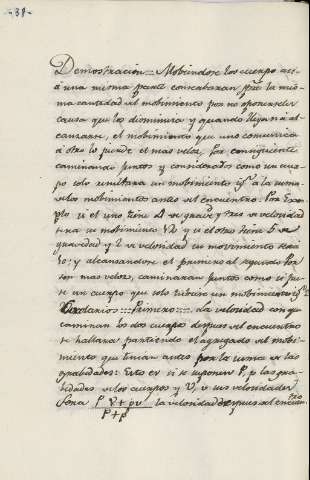 -38-
Demostracion = Mobiendose los cuerpos acia
á una misma parte conserbaran pre. la mis-
ma cantidad de mobimiento por no oponerseles
causa que los disminuia y quando llegaran á al-
canzarse, el mobimiento que uno comunica
á otro lo pierde el mas veloz. Por consiguiente
caminando juntos y considerados como un cuer-
po solo resultara un mobimiento igl. a la suma
de los mobimientos antes del encuentro. Por Exem-
plo si el uno tiene 4 de grave y tres de velocidad
sera su mobimiento 12 y si el otro tiene 5 de
gravedad y 2 de velocidad su movimiento sera
10; y alcansandose el primero al segundo por
ser mas veloz, caminaran juntos como si fue-
se un cuerpo que solo tubiese un mobimiento igl.
Corolarios = Primero = La velocidad con que
caminan los dos cuerpos despues del encuentro
se hallara partiendo el agregado del mobi-
miento que tenian antes por la suma de las
grabedades: Esto es si se suponen P, p las gra-
bedades de los cuerpos y V, v sus velocidades
Sera P V + pv la velocidad despues del encuentro
P + p